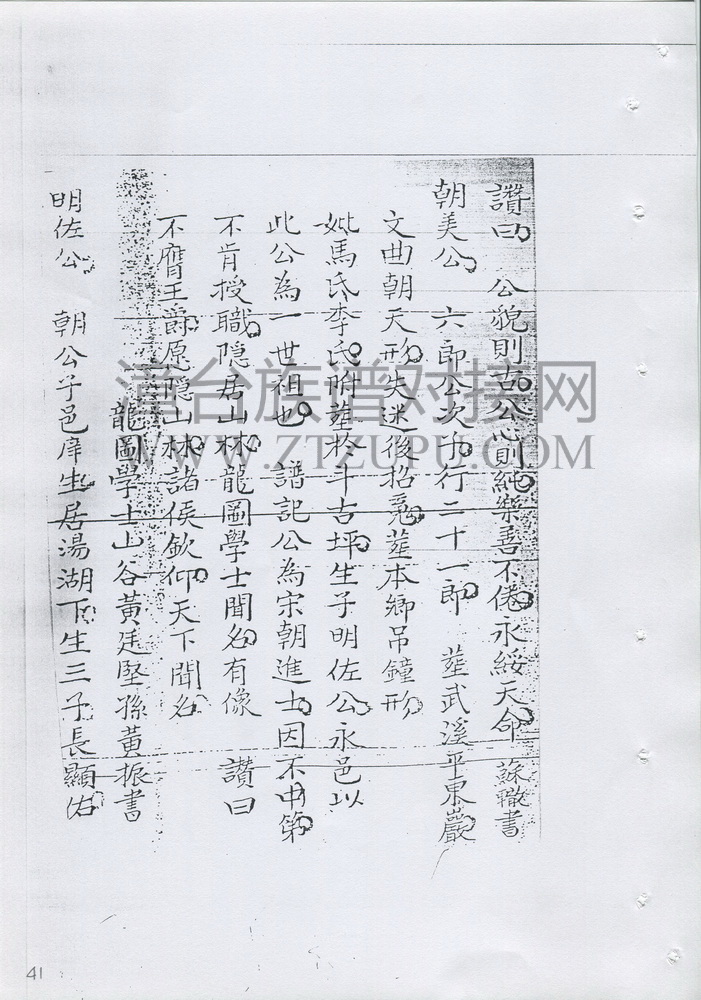 讚曰　公貌則古公心則純樂善不倦永綏天命　蘇轍書
朝美公　六郎公次子行二十一郎　塟武溪平東巖
文曲朝天形失迷後招魂塟本鄉吊鐘形
妣馬氏李氏附塟於斗古坪生子明佐公永邑以
此公為一世祖也　譜記公為宋朝進士因不中第
不肯授職隱居山林龍圖學士聞名有像　讚曰
不膺王爵愿隱山林諸侯欽仰天下聞名
龍圖學士山谷黃廷堅孫黃振書
明佐公　朝公子邑庠生居湯湖下生三子長顯佑
澶台族谱对接网
WWW.ZTZUPU.COM
41